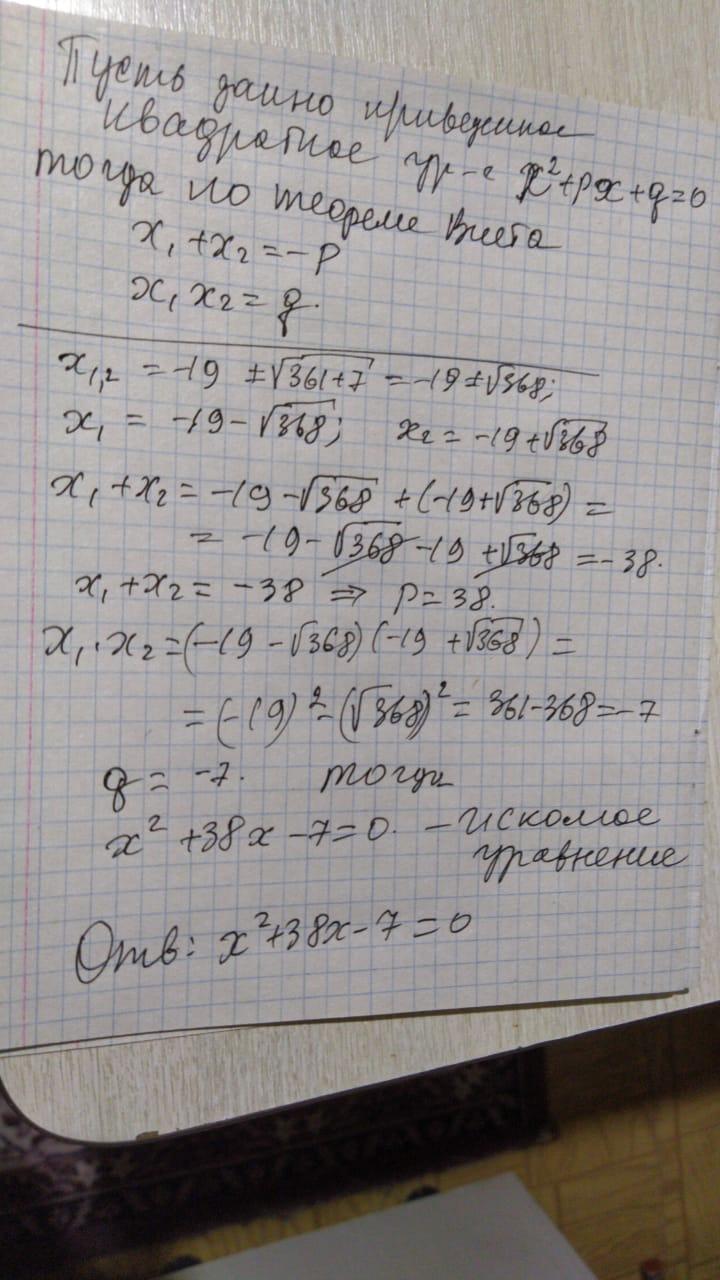 Пусть дано приведенное
квадратное ур-е x²+px+q=0
тогда по теореме Виета
x₁+x₂=-p
x₁x₂=q.
x₁,₂ = -19 ±√361+7 = -19±√368;
x₁ = -19-√368; x₂ = -19+√368
x₁+x₂ = -19-√368 +(-19+√368) =
= -19-√368-19+√368 =-38.
x₁+x₂ = -38 ⇒ p=38.
x₁·x₂=(-19-√368)(-19+√368) =
=(-19)²-(√368)²= 361-368=-7
q = -7. тогда
x²+38x-7=0. - искомое
уравнение
Отв: x²+38x-7=0